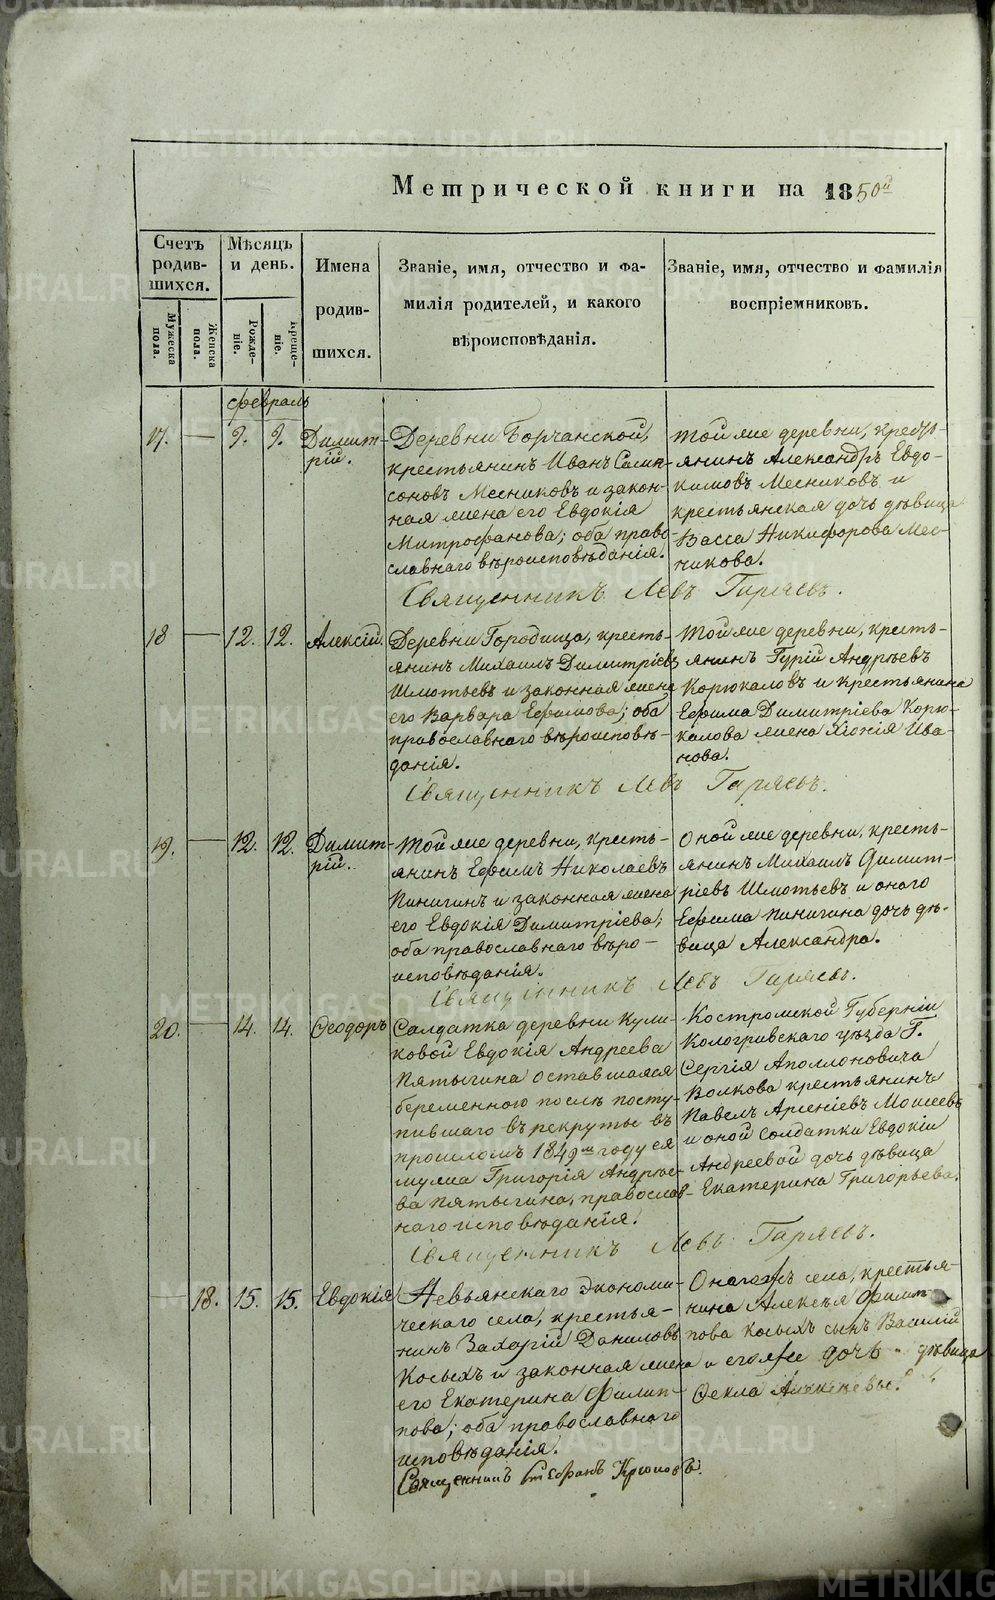 Метрической книги на 1850й
Счетъ родившихся.
Мужеска пола.
Женска пола.
Мѣсяцъ и день.
Рожденіе.
Крещеніе.
Имена родившихся.
Званіе, имя, отчество и фамилія родителей, и какого вѣроисповѣданія.
Званіе, имя, отчество и фамилія воспріемниковъ.
февраль
17. — 9. 9. Димитрій.
Деревни Борчанской,
крестьянинъ Иванъ Самп-
соновъ Месниковъ и закон-
ная жена его Евдокія
Митрофанова; оба право-
славнаго вѣроисповѣданія.
Той же деревни, кресть-
янинъ Александръ Евдо-
кимовъ Месниковъ и
крестьянская дочь дѣвица
Васса Никифорова Мес-
никова.
Священникъ Левъ Гаряевъ.
18 — 12. 12. Алексій.
Деревни Городища, кресть-
янинъ Михаилъ Димитріевъ
Шмотьевъ и законная жена
его Варвара Ефимова; оба
православнаго вѣроисповѣ-
данія.
Той же деревни, кресть-
янинъ Гурій Андрѣевъ
Корюкаловъ и крестьянина
Ефима Димитріева Корю-
калова жена Хіонія Ива-
нова.
Священникъ Левъ Гаряевъ.
19. — 12. 12. Димитрій.
Той же деревни, кресть-
янинъ Ефимъ Николаевъ
Пинигинъ и законная жена
его Евдокія Димитріева;
оба православнаго вѣро-
исповѣданія.
Оной же деревни, кресть-
янинъ Михаилъ Димит-
ріевъ Шмотьевъ и онаго
Ефима Пинигина дочь дѣ-
вица Александра.
Священникъ Левъ Гаряевъ.
20. — 14. 14. Ѳеодоръ
Салдатка деревни Кули-
ковой Евдокія Андреева
Пятыгина оставшаяся
беременною послѣ посту-
пившаго въ рекруты въ
прошломъ 1849мъ году ея
мужа Григорія Андрѣе-
ва Пятыгина, православ-
наго исповѣданія.
Костромской Губерніи
Кологривскаго уѣзда Г.
Сергія Аполлоновича
Волкова крестьянинъ
Павелъ Арсеніевъ Моисеевъ
и оной Солдатки Евдокіи
Андреевой дочь дѣвица
Екатерина Григорьева.
Священникъ Левъ Гаряевъ.
— 18. 15. 15. Евдокія
Невьянскаго Экономи-
ческаго села, крестья-
нинъ Захарій Даниловъ
Косыхъ и законная жена
его Екатерина Филип-
пова; оба православнаго
исповѣданія.
Онагожъ села, крестья-
нина Алексѣя Филип-
пова Косыхъ сынъ Василій
и его же дочь дѣвица
Ѳекла
Священникъ Стефанъ
METRIKI.GASO-URAL.RU